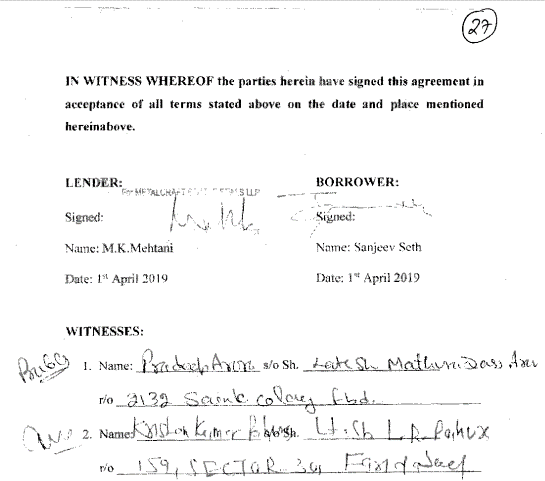 27
IN WITNESS WHEREOF the parties herein have signed this agreement in
acceptance of all terms stated above on the date and place mentioned
hereinabove.
LENDER:
For METALCRAFT LLP
Signed:
Name: M.K.Mehtani
Date: 1st April 2019
BORROWER:
Signed:
Name: Sanjeev Seth
Date: 1st April 2019
WITNESSES:
1. Name: Pradeep Arora s/o Sh. Late Sh Mathura Dass
r/o 2132 colony Fbd.
2. Name: Krishan Kumar s/o Sh. Lt. Sh L.R.
r/o 159, SECTOR